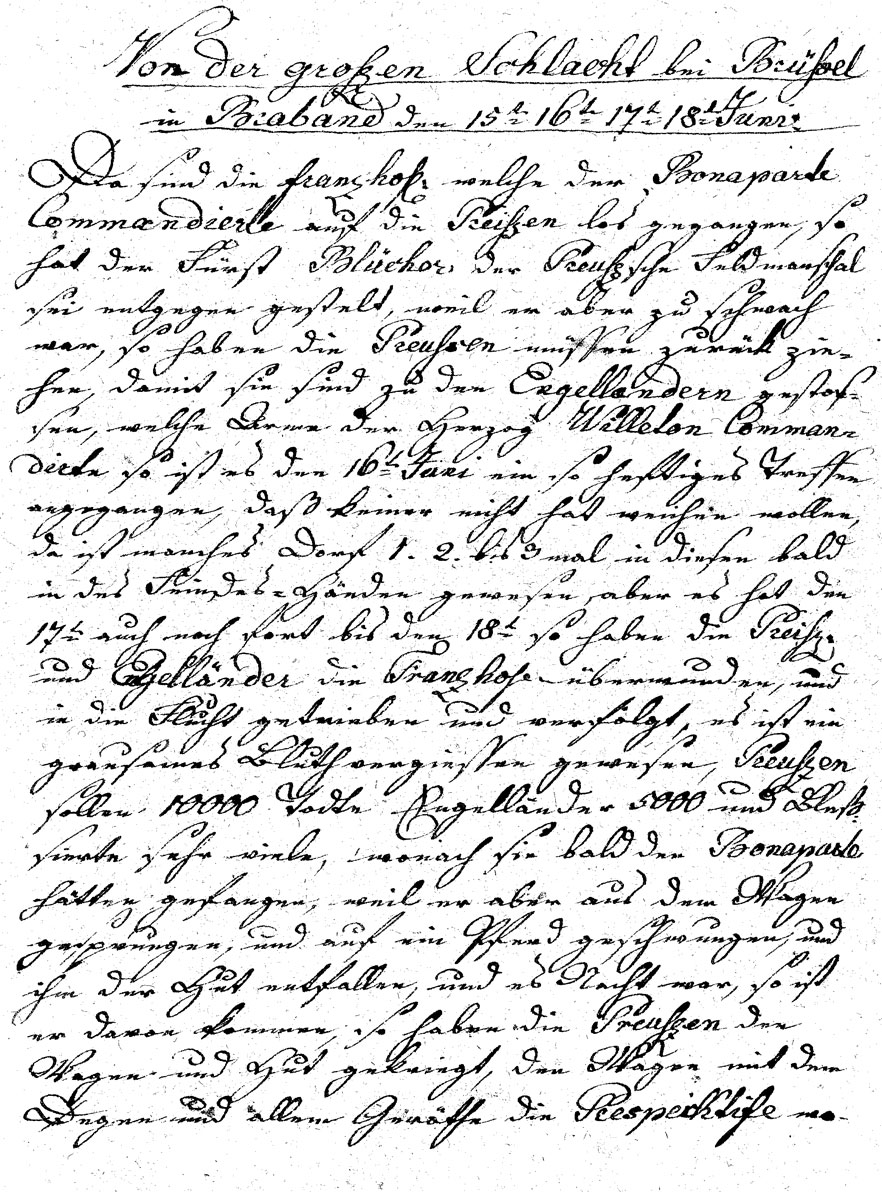 Von der großen Schlacht bei Brüßel
in Braband den 15t 16t 17t 18t Juni
Da sind die franzhoß. welche der Bonaparte
Commandierte auf die Preißzen los gegangen, so
hat der Fürst Blücher, der Preußzsche Feldmarschal
sei entgegen gestelt, weil er aber zu schwach
war, so haben die Preussen müssen zurück zie=
hen, damit sie sind zu den Engelländern gestos=
sen, welche Arme der Herzog Willeton Comman=
dirte so ist es den 16t Juni ein so heftiges Treffen
angegangen, daß keiner nicht hat weichen wollen,
da ist manches Dorf 1. 2. bis 3 mal in diesen bald
in des Feindes=Händen gewesen, aber es hat den
17t auch noch fort bis den 18t so haben die Preißz.
und Engelländer die Franzhose überwunden, und
in die Flucht getrieben und verfolgt, es ist ein
grausames Bluthvergiessen gewesen, Preußzen
sollen 10000 Todte Engelländer 5000 und Bleß=
sierte sehr viele, wonach sie bald den Bonaparte
hätten gefangen, weil er aber aus dem Wagen
gesprungen, und auf ein Pferd geschwungen, und
ihm der Hut entfallen, und es Nacht war, so ist
er davon kommen, so haben die Preußzen den
Wagen und Hut gekriegt, den Wagen mit dem
Degen und allem Geräthe die Prespecktife wo-